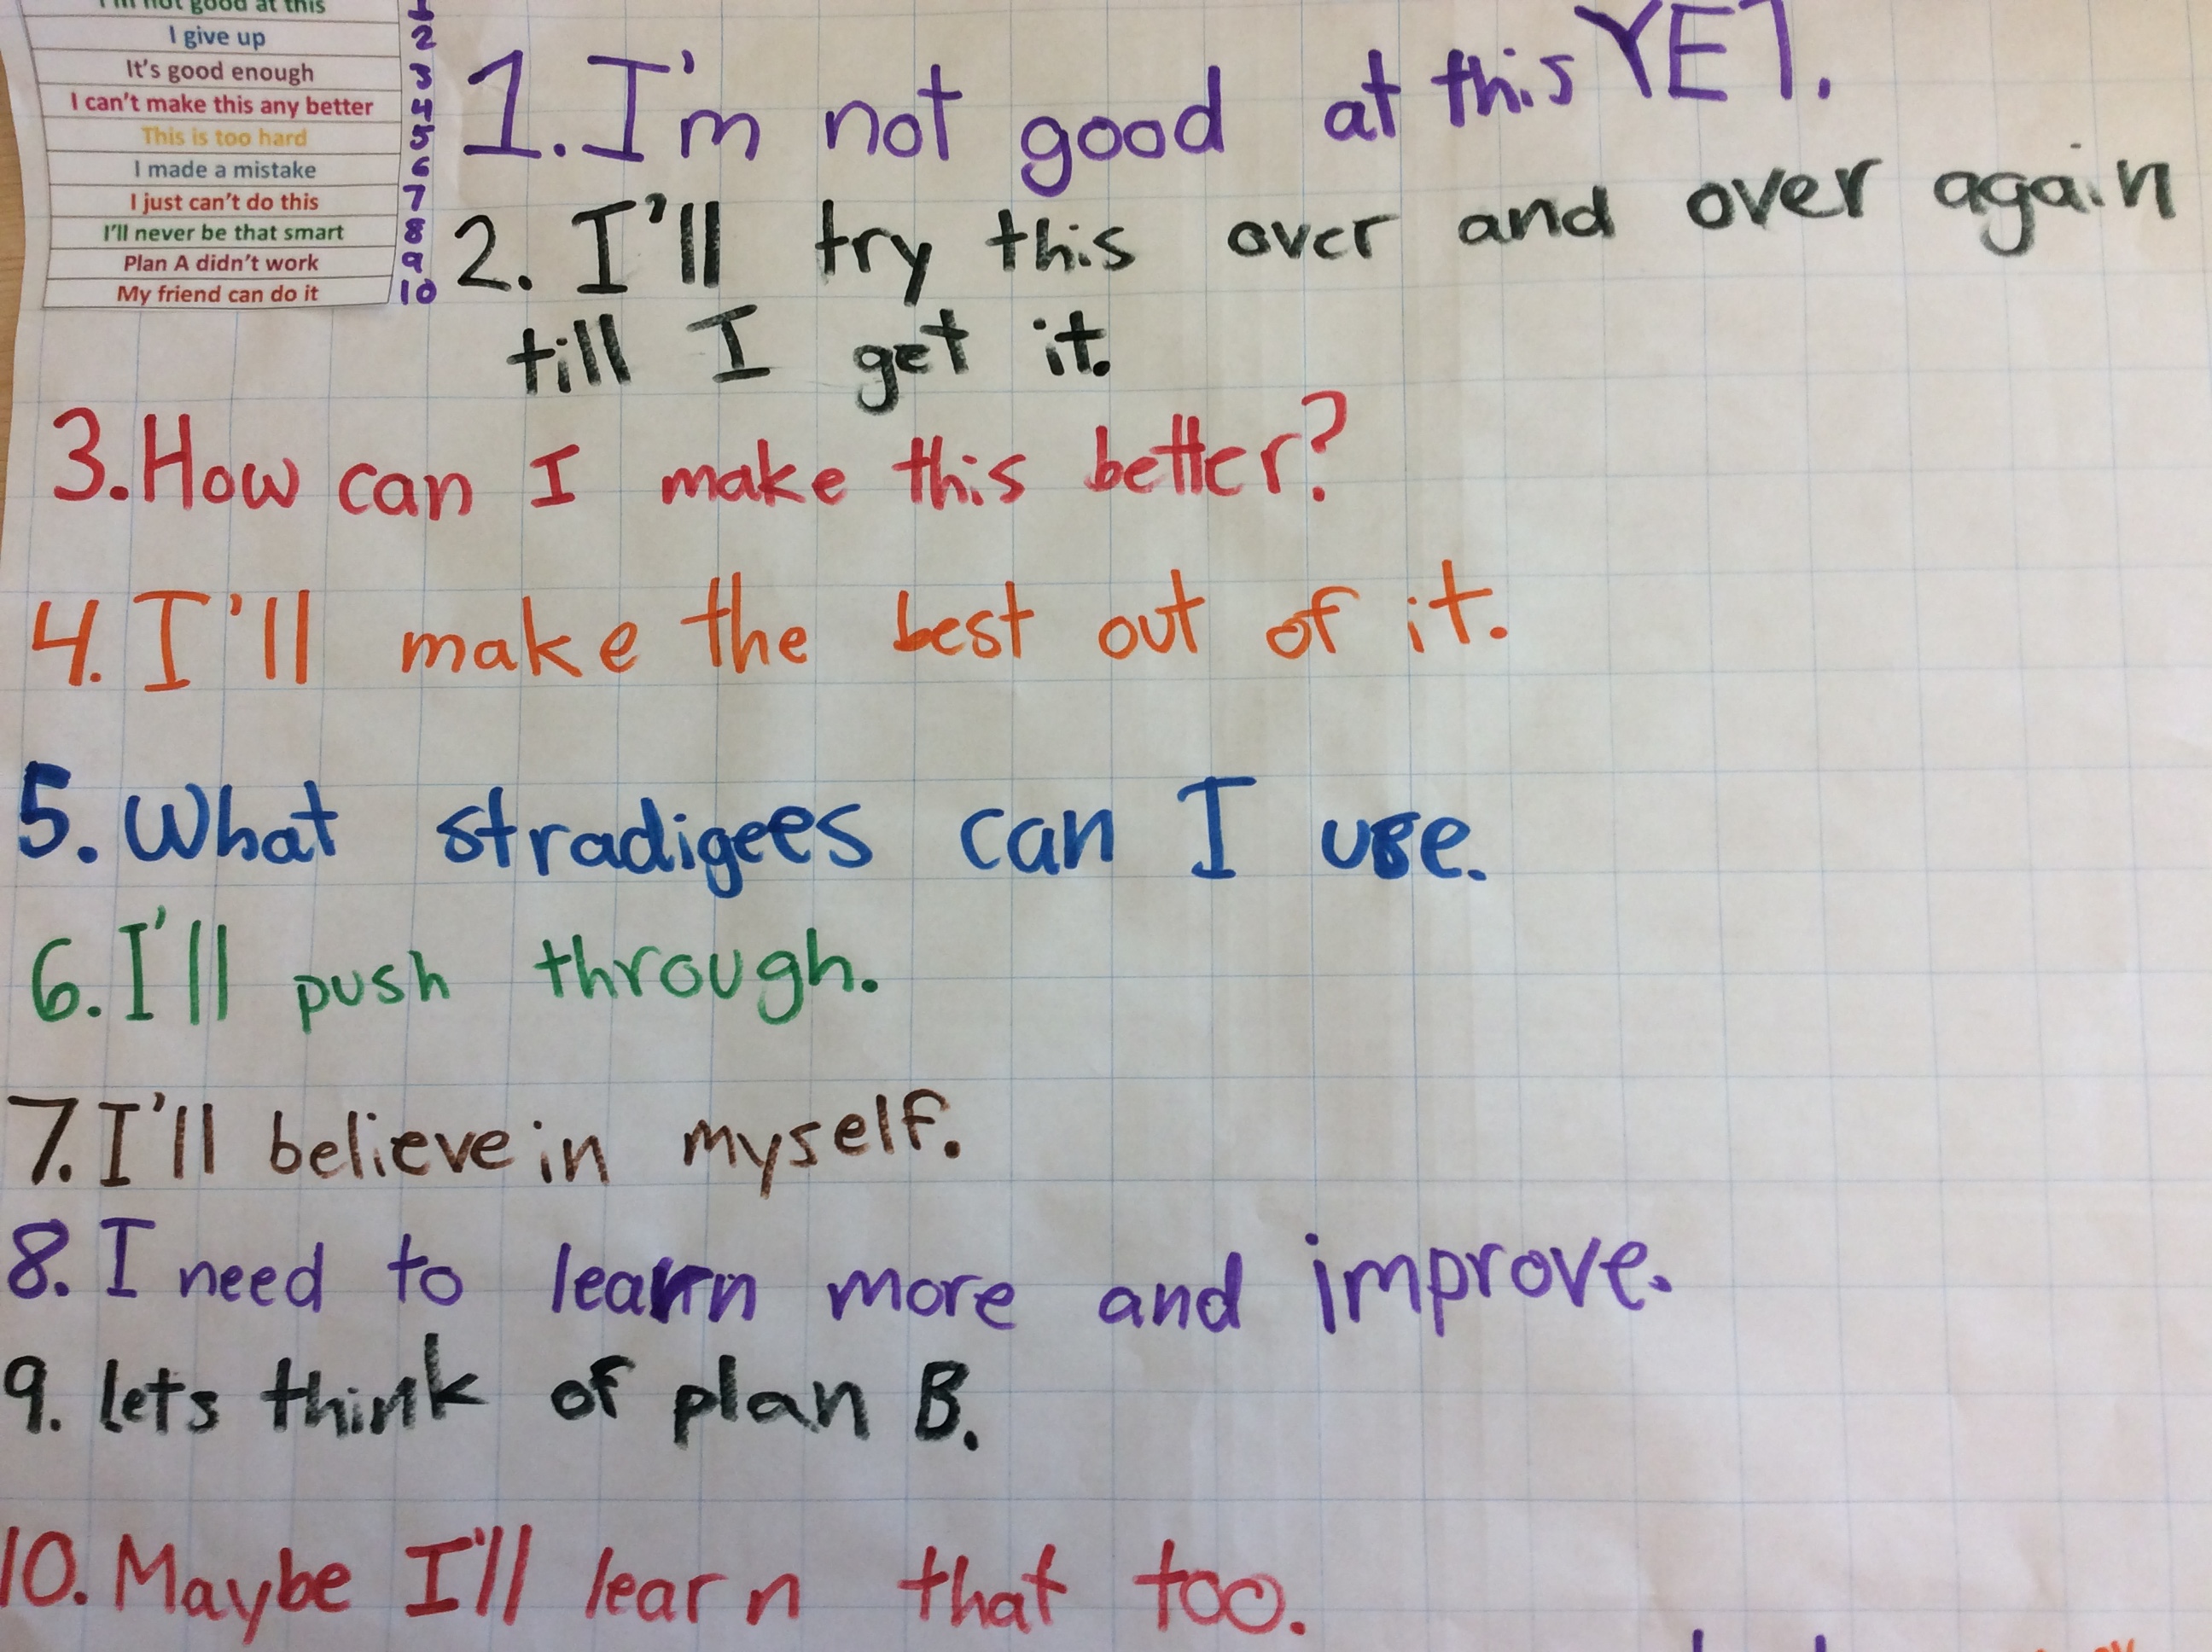 I'm not good at this 1
I give up 2
It's good enough 3
I can't make this any better 4
This is too hard 5
I made a mistake 6
I just can't do this 7
I'll never be that smart 8
Plan A didn't work 9
My friend can do it 10
1. I'm not good at this YET.
2. I'll try this over and over again
till I get it.
3. How can I make this better?
4. I'll make the best out of it.
5. What stradigees can I use.
6. I'll push through.
7. I'll believe in myself.
8. I need to learn more and improve.
9. lets think of plan B.
10. Maybe I'll learn that too.